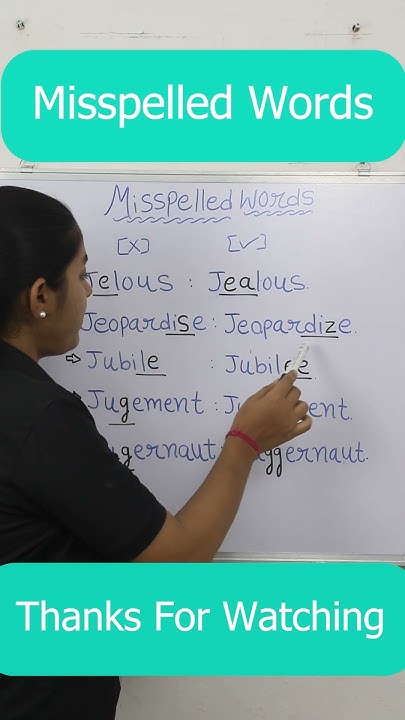 Misspelled Words
Misspelled Words
[x] [✓]
Jelous : Jealous.
Jeopardise : Jeopardize.
⇒ Jubile : Jubilee.
⇒ Jugement :
Jugernaut : Juggernaut.
Thanks For Watching